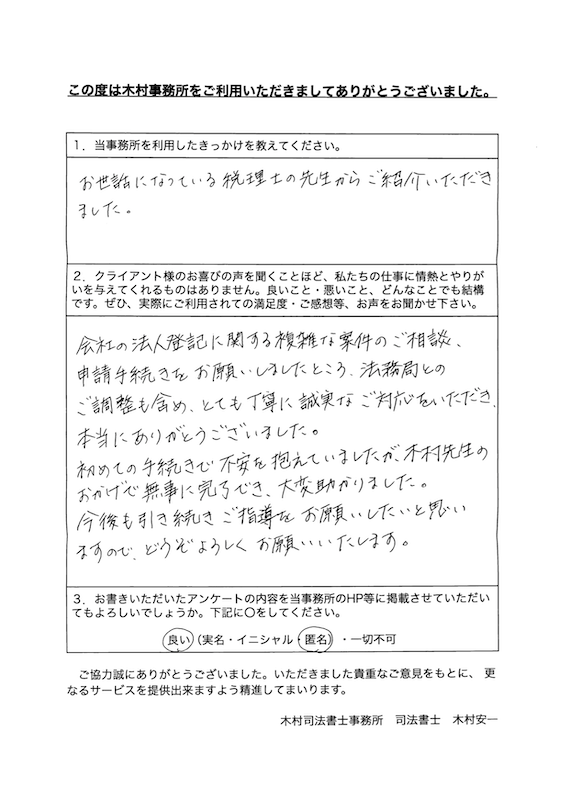 この度は木村事務所をご利用いただきましてありがとうございました。
1．当事務所を利用したきっかけを教えてください。
お世話になっている税理士の先生からご紹介いただき
ました。
2．クライアント様のお喜びの声を聞くことほど、私たちの仕事に情熱とやりが
いを与えてくれるものはありません。良いこと・悪いこと、どんなことでも結構
です。ぜひ、実際にご利用されての満足度・ご感想等、お声をお聞かせ下さい。
会社の法人登記に関する複雑な案件のご相談、
申請手続きをお願いしましたところ、法務局との
ご調整も含め、とても丁寧に誠実なご対応をいただき、
本当にありがとうございました。
初めての手続きで不安を抱えていましたが、木村先生の
おかげで無事に完了でき、大変助かりました。
今後も引き続きご指導をお願いしたいと思い
ますので、どうぞよろしくお願いいたします。
3．お書きいただいたアンケートの内容を当事務所のHP等に掲載させていただい
てもよろしいでしょうか。下記に〇をしてください。
良い（実名・イニシャル・匿名）・一切不可
ご協力誠にありがとうございました。いただきました貴重なご意見をもとに、更
なるサービスを提供出来ますよう精進してまいります。
木村司法書士事務所　司法書士　木村安一